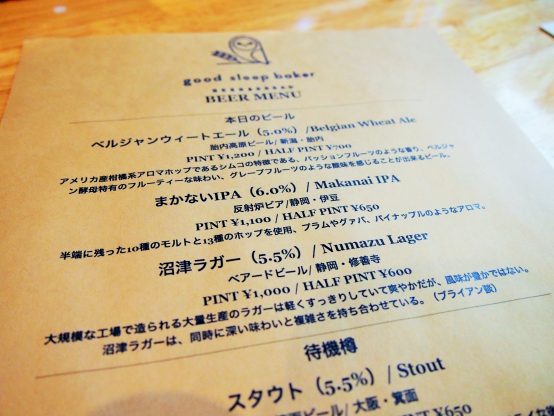 good sleep baker
BEER MENU
本日のビール
ベルジャンウィートエール（5.0%）/Belgian Wheat Ale
胎内高原ビール/ 新潟・胎内
PINT ¥1,200 / HALF PINT ¥700
アメリカ産柑橘系アロマホップであるシムコの特徴である、パッションフルーツのような香り、ベルジャ
ン酵母特有のフルーティーな味わい、グレープフルーツのような酸味を感じることが出来るビール。
まかないIPA（6.0%）/ Makanai IPA
反射炉ビア/静岡・伊豆
PINT ¥1,100 / HALF PINT ¥650
半端に残った10種のモルトと13種のホップを使用、プラムやグァバ、パイナップルのようなアロマ。
沼津ラガー（5.5%）/ Numazu Lager
ベアードビール/ 静岡・修善寺
PINT ¥1,000 / HALF PINT ¥600
大規模な工場で造られる大量生産のラガーは軽くすっきりしていて爽やかだが、風味が豊かではない。
沼津ラガーは、同時に深い味わいと複雑さを持ち合わせている。（ブライアン談）
待機樽
スタウト（5.5%）/ Stout
ビール/ 大阪・箕面
PINT ¥650